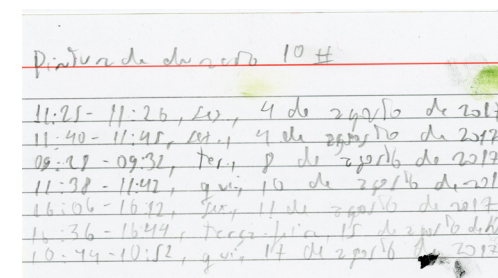 Pintura de 10 #
11:25 - 11:26, sex., 4 de agosto de 2017
11:40 - 11:45, sex., 4 de agosto de 2017
09:28 - 09:32, ter., 8 de agosto de 2017
11:38 - 11:42, qui, 10 de agosto de 201
16:06 - 16:12, sex, 11 de agosto de 2017
16:36 - 16:44, terça-feira, 15 de agosto de
10:44 - 10:52, qui, 17 de agosto de 2017